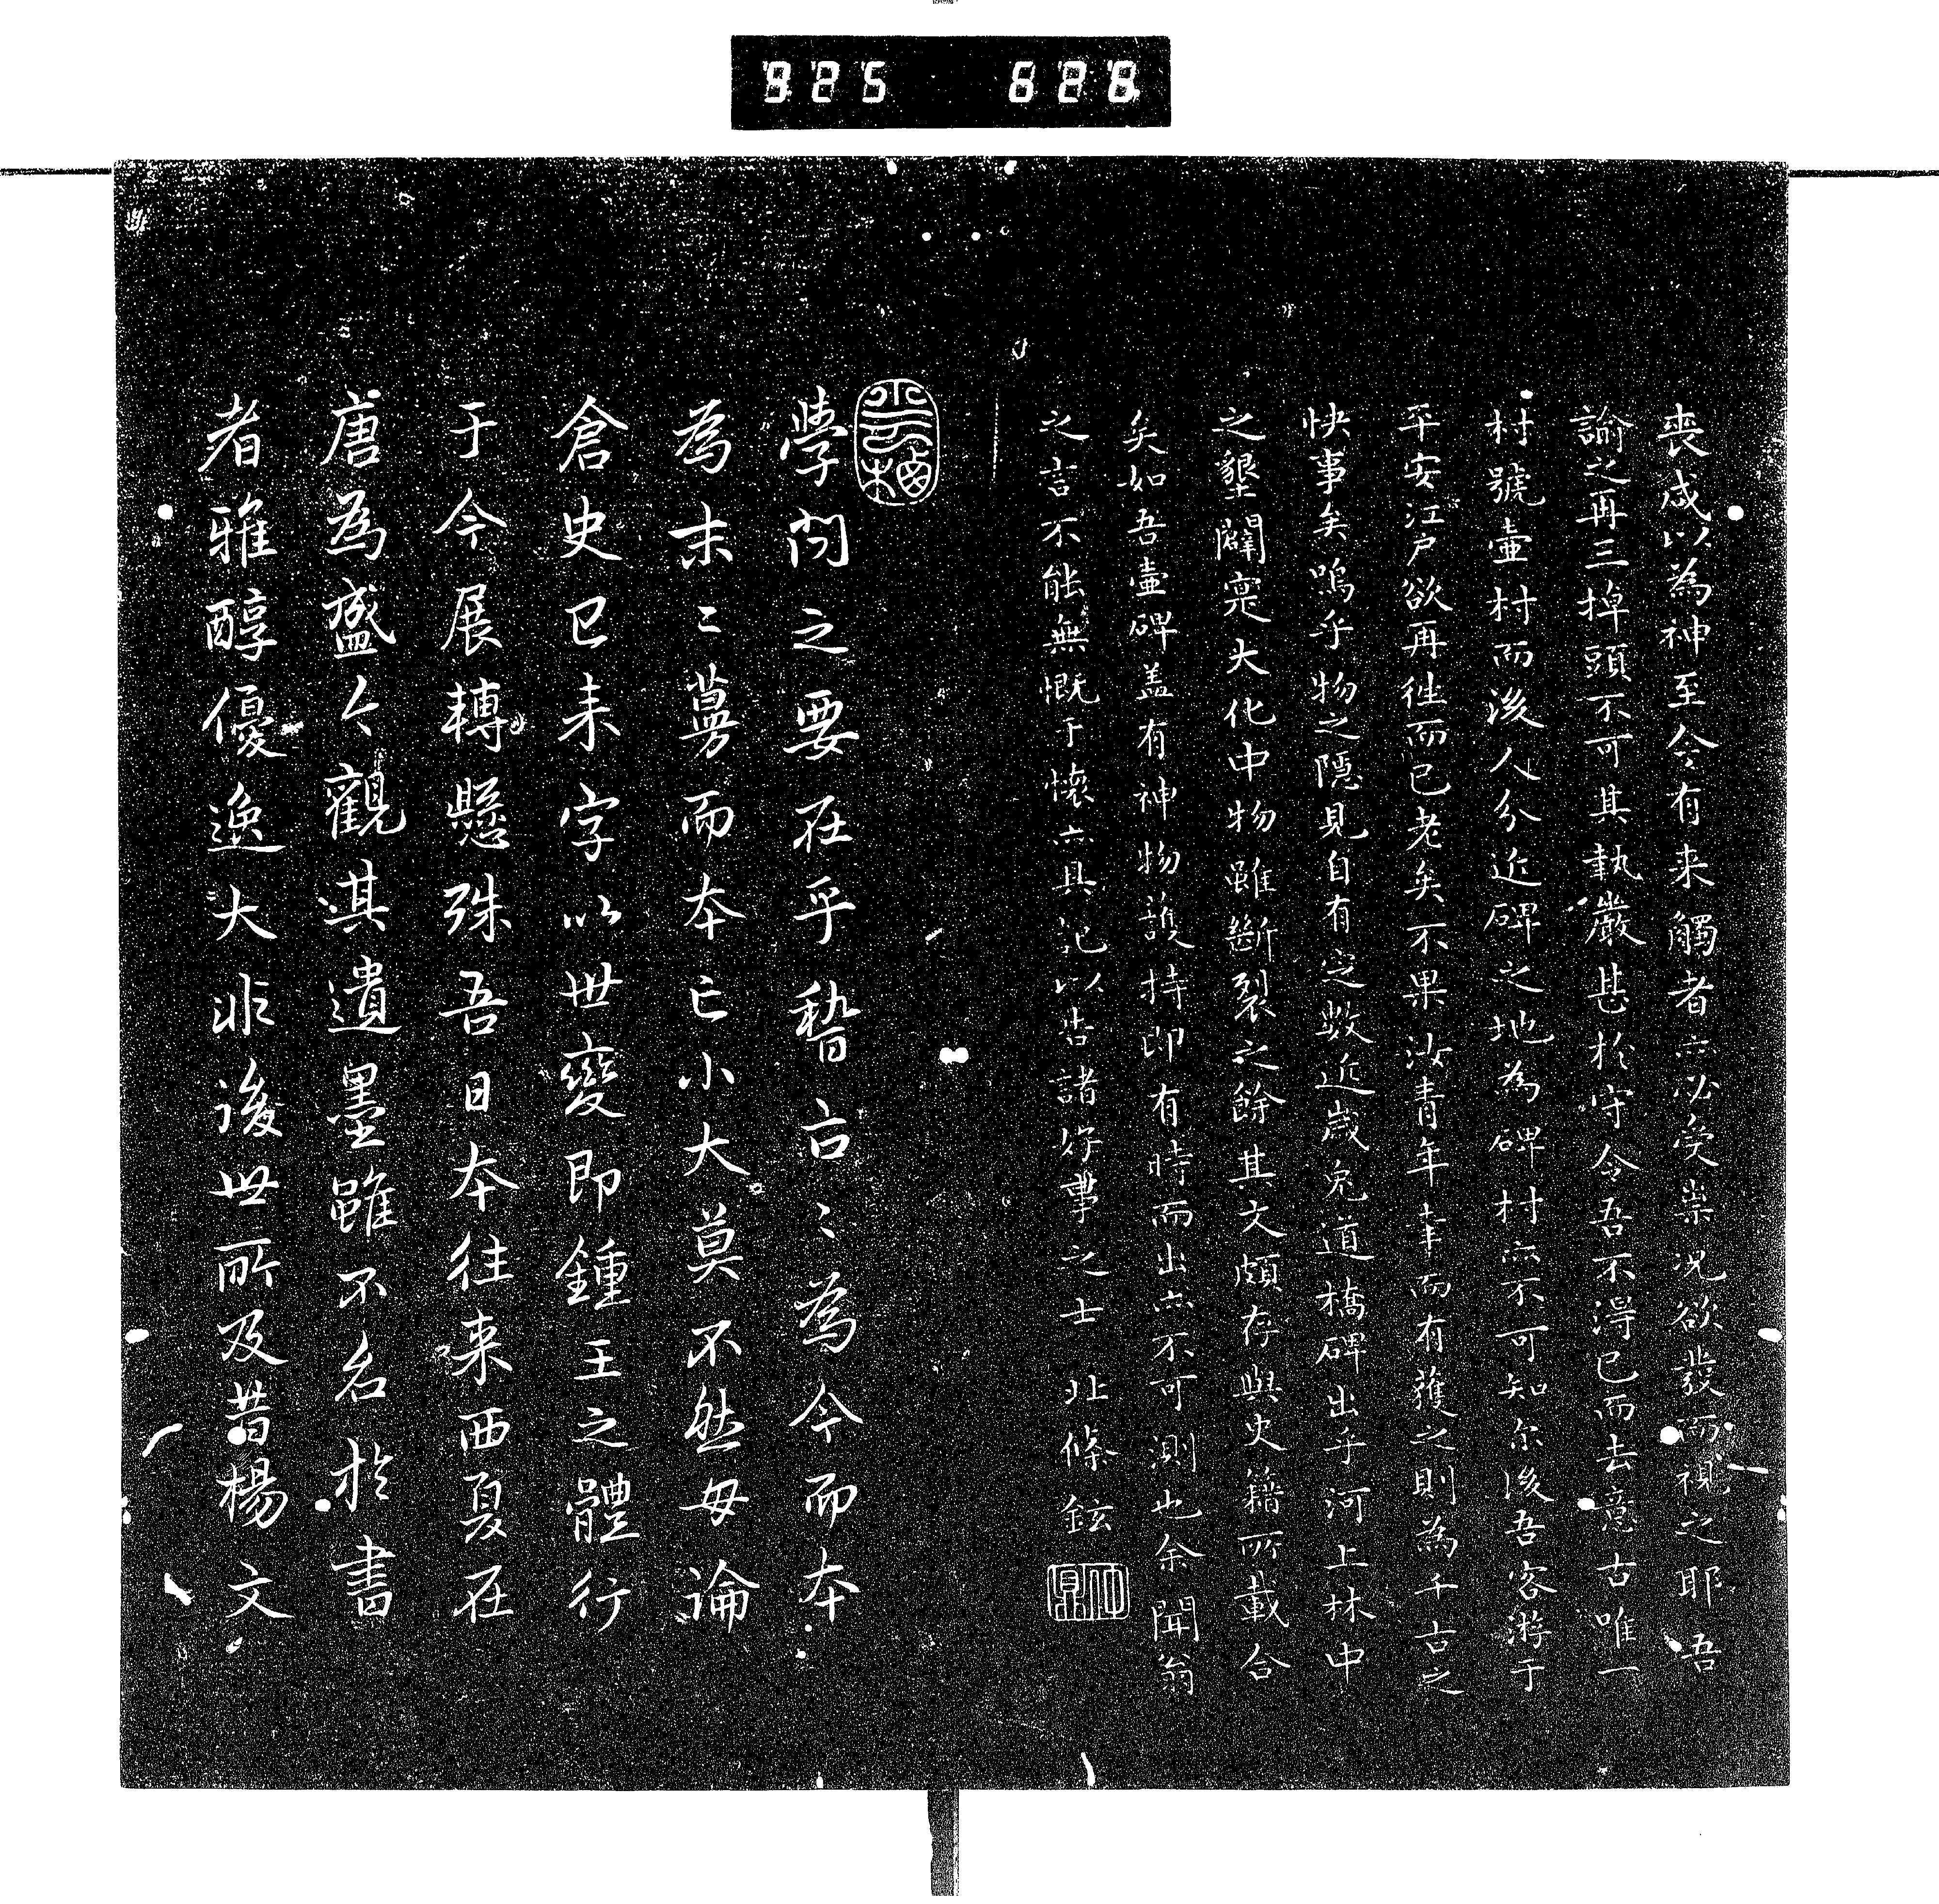 925 628
喪歳以為神至今有来觸者亦必受祟况欲發而視之耶吾
諭之再三掉頭不可其執嚴甚於守令吾不得已而去意古唯一
村號壷村而後人分近碑之地為碑村亦不可知尓後吾客游于
平安江戸欲再徃而已老矣不果汝青年幸而有獲之則為千古之
快事矣嗚乎物之隠見自有定数近歳兎道橋碑出乎河上林中
之墾闢寔大化中物雖斷裂之餘其文頗存與史籍所載合
矣如吾壷碑盖有神物護持即有時而出亦不可測也余聞翁
之言不能無慨于懐亦具記以告諸好事之士 北條鉉
學問之要在乎稽古〻為今而本
為末〻蕚而本亡小大莫不然毋論
倉史已来字以世變即鍾王之體行
于今展轉懸殊吾日本往来西夏在
唐為盛今觀其遺墨雖不名於書
者雅醇優逸大非後世所及昔楊文